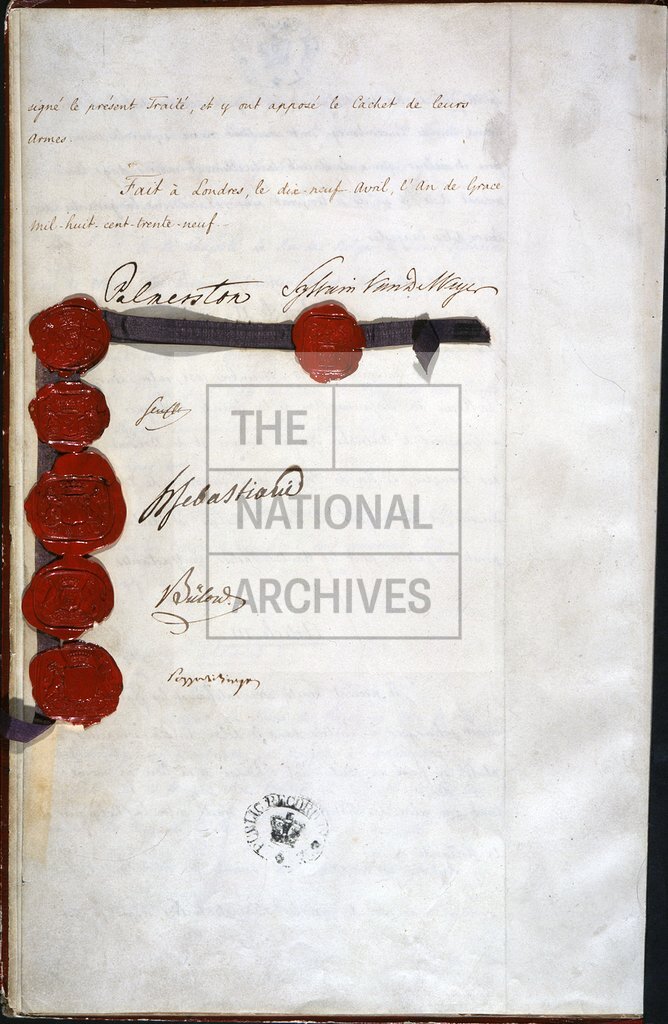 signé le présent Traité, et y ont apposé le Cachet de leurs
Armes.
Fait à Londres, le dix-neuf Avril, l'An de Grace
mil-huit-cent-trente-neuf.
Palmerston Sylvain Van de Weyer
Senfft
H Sebastiani
Bülow.
Pozzo di Borgo
THE
NATIONAL
ARCHIVES
PUBLIC RECORD